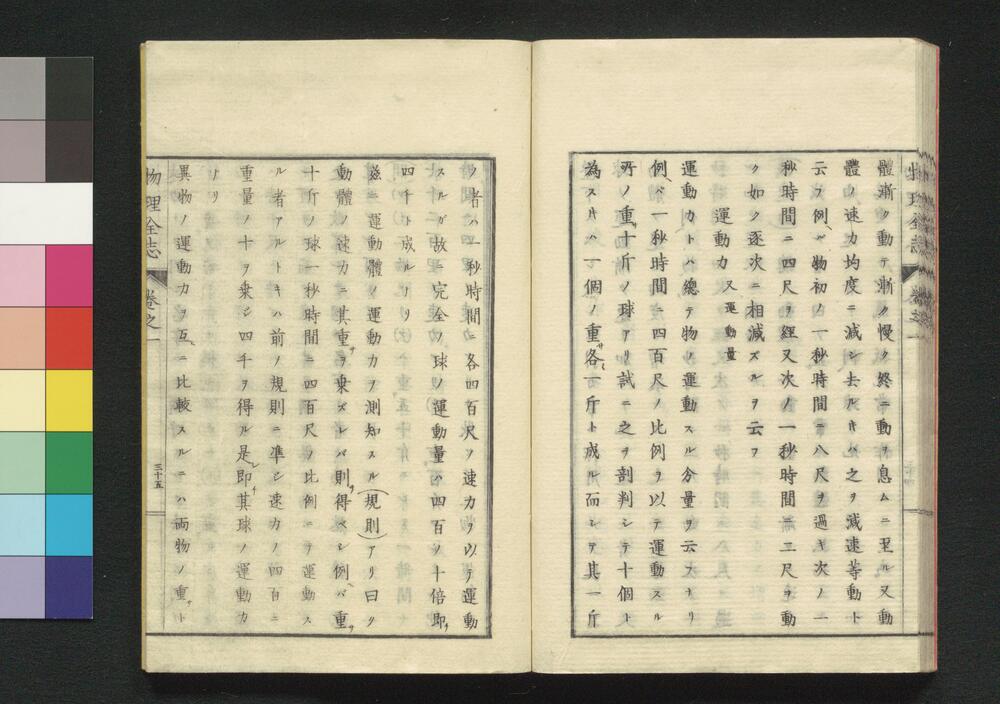 體漸ク動テ漸ク慢ク終ニ動ヲ息ムニ至ル又動
體ノ速力均度ニ減シ去ルキハ之ヲ減速等動ト
云フ例ヘハ物初ノ一秒時間ニ八尺ヲ過キ次ノ一
秒時間ニ四尺ヲ經又次ノ一秒時間ニ二尺ヲ動
ク如ク逐次ニ相減ズルヲ云フ
運動力 又運動量
運動力トハ總テ物ノ運動スル分量ヲ云フナリ
例ヘハ一秒時間ニ四百尺ノ比例ヲ以テ運動スル
所ノ重サ十斤ノ球アリ試ニ之ヲ剖判シテ十個ト
為スキハ一個ノ重サ各〻一斤ト成ル而シテ其一斤
ノ者ハ一秒時間ニ各四百尺ノ速力ヲ以テ運動
スルガ故ニ完全ノ球ノ運動量ハ四百ノ十倍即チ
四千ト成ルナリ
茲ニ運動體ノ運動力ヲ測知スル(規則)アリ曰ク
動體ノ速力ニ其重サヲ乗ズレバ則チ得ベシ例ヘバ重サ
十斤ノ球一秒時間ニ四百尺ノ比例ニテ運動ス
ル者アルトキハ前ノ規則ニ準シ速力ノ四百ニ
重量ノ十ヲ乗シ四千ヲ得ル是レ即チ其球ノ運動力
ナリ
異物ノ運動力ヲ互ニ比較スルニハ両物ノ重サト
物理全志 卷之一 三十五